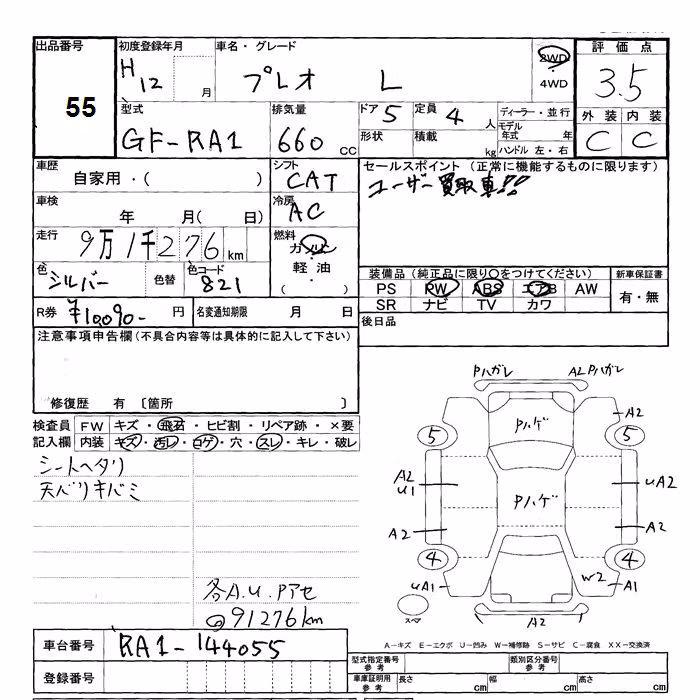 出品番号 初度登録年月 車名・グレード 評価点
55 H12 月 プレオ L 2WD・4WD 3.5
型式 排気量 ドア 5 定員 4人 ディーラー・並行 外装 内装
GF-RA1 660 cc 形状 積載 kg モデル年式 年 ハンドル 左・右 C C
車歴 自家用・( ) シフト CAT セールスポイント (正常に機能するものに限ります)
車検 年 月( 日) 冷房 AC ユーザー買取車!!
走行 9万1千276km 燃料 ガソリン・軽油・( )
色 シルバー 色替 色コード 821 装備品 (純正品に限り○をつけてください) 新車保証書
PS PW ABS エアB AW 有・無
SR ナビ TV カワ
R券 ¥10,090- 円 名変通知期限 月 日 後日品
注意事項申告欄(不具合内容等は具体的に記入して下さい)
修復歴 有 〔箇所 〕
検査員 FW キズ・飛石・ヒビ割・リペア跡・×要
記入欄 内装 キズ・汚レ・コゲ・穴・スレ・キレ・破レ
シートヘタリ
天バリキバミ
各A.U.Pアセ
◎91276km
Pハガレ A2 Pハガレ
Pハゲ A2
5 5
A2 U1 Pハゲ UA2
A2 A2
4 4
UA1 W2 A1
スペア A2
A-キズ E-エクボ U-凹み W-補修跡 S-サビ C-腐食 XX-交換済
車台番号 RA1-144055
登録番号
型式指定番号 参考 類別区分番号 参考
車庫証明用 参考 長さ cm 幅 cm 高さ cm